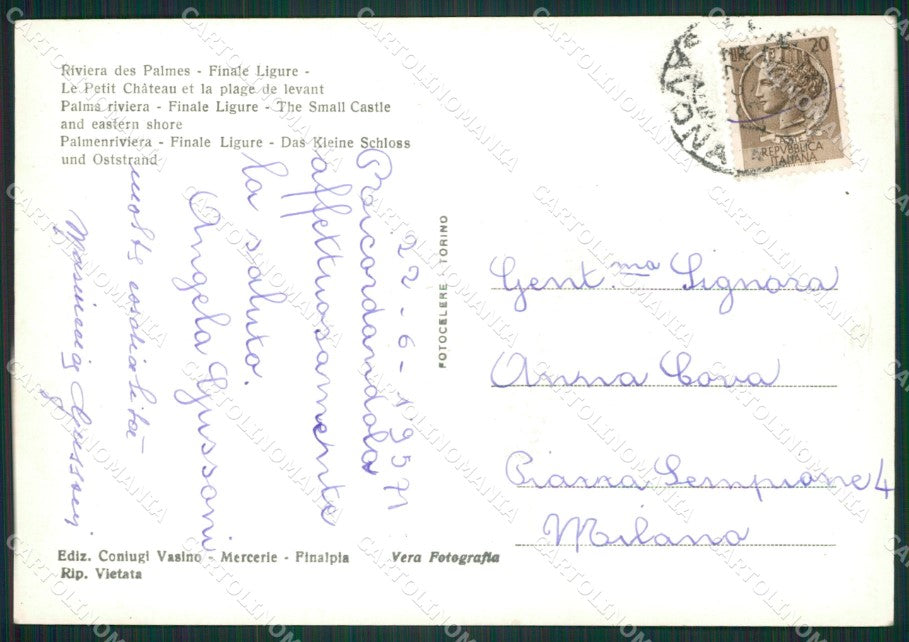 Riviera des Palmes - Finale Ligure -
Le Petit Château et la plage de levant
Palms riviera - Finale Ligure - The Small Castle
and eastern shore
Palmenriviera - Finale Ligure - Das Kleine Schloss
und Oststrand
22-6-1957
Ricordandola
affettuosamente
la saluto.
Angela Gussoni
molte cordialità
Gussoni
FOTOCELERE TORINO
20
REPVBBLICA
ITALIANA
Gent.ma Signora
Anna Cova
Piazza Sempione 4
Milano
Ediz. Coniugi Vasino - Mercerie - Finalpia
Vera Fotografia
Rip. Vietata
CARTOLINOMANIA